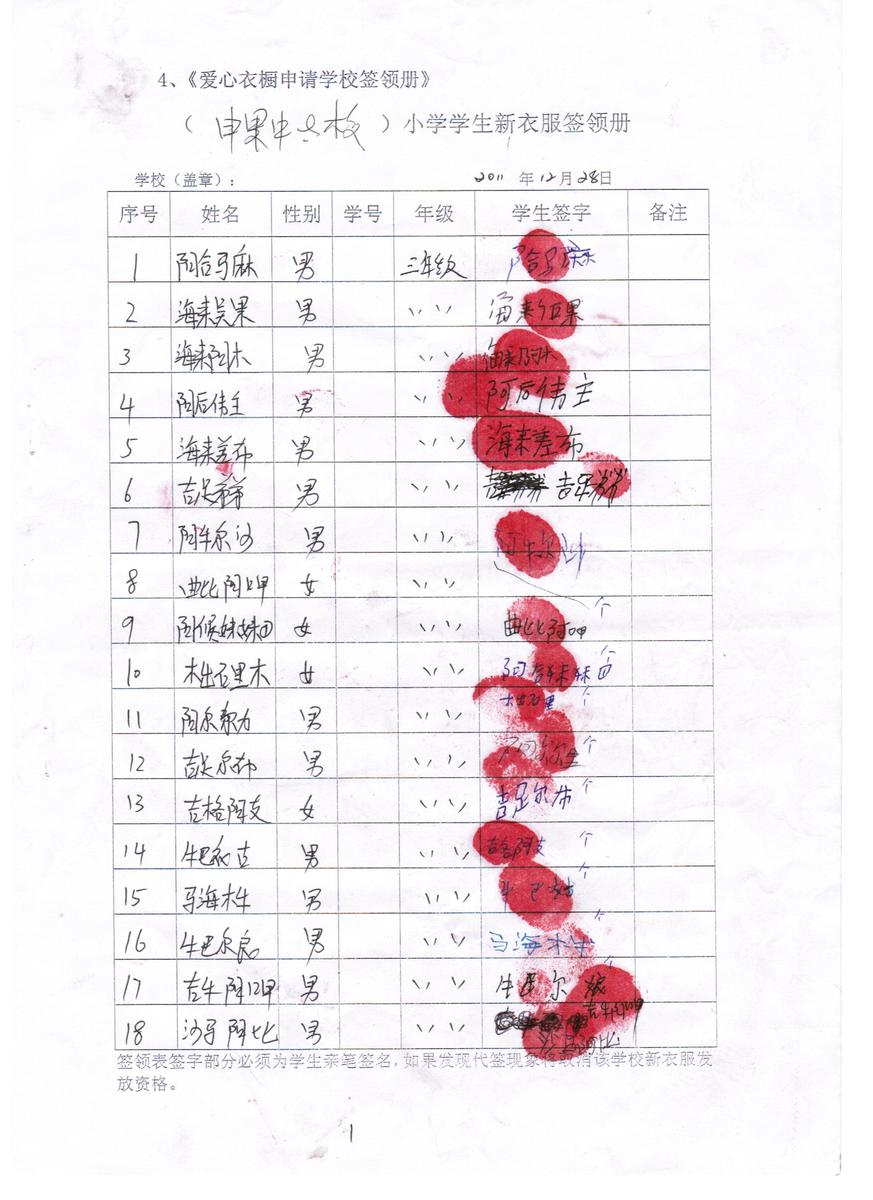 4、《爱心衣橱申请学校签领册》
（申果中心校）小学学生新衣服签领册
学校（盖章）： 2011 年 12 月 28 日
序号 姓名 性别 学号 年级 学生签字 备注
1 阿合马麻 男 三年级 阿合马
2 海来吴果 男 〃 海来 果
3 海来阿木 男 〃 海来阿木
4 阿后伟主 男 〃 阿后伟主
5 海来差布 男 〃 海来差布
6 吉足 男 〃 吉足
7 阿牛尔沙 男 〃 阿牛尔沙
8 曲比阿呷 女 〃
9 阿侯妹妹 女 〃 曲比阿呷
10 木出石里木 女 〃 阿
11 阿尔 力 男 〃 木出石里
12 吉足尔布 男 〃
13 吉格阿支 女 〃 吉足尔布
14 牛巴 古 男 〃 吉各阿支
15 马海木牛 男 〃 牛巴
16 牛巴尔良 男 〃 马海木牛
17 吉牛阿呷 男 〃 牛巴尔 吉牛阿呷
18 沙马阿比 男 〃 沙马阿比
签领表签字部分必须为学生亲笔签名，如果发现代签现象将取消该学校新衣服发
放资格。
1